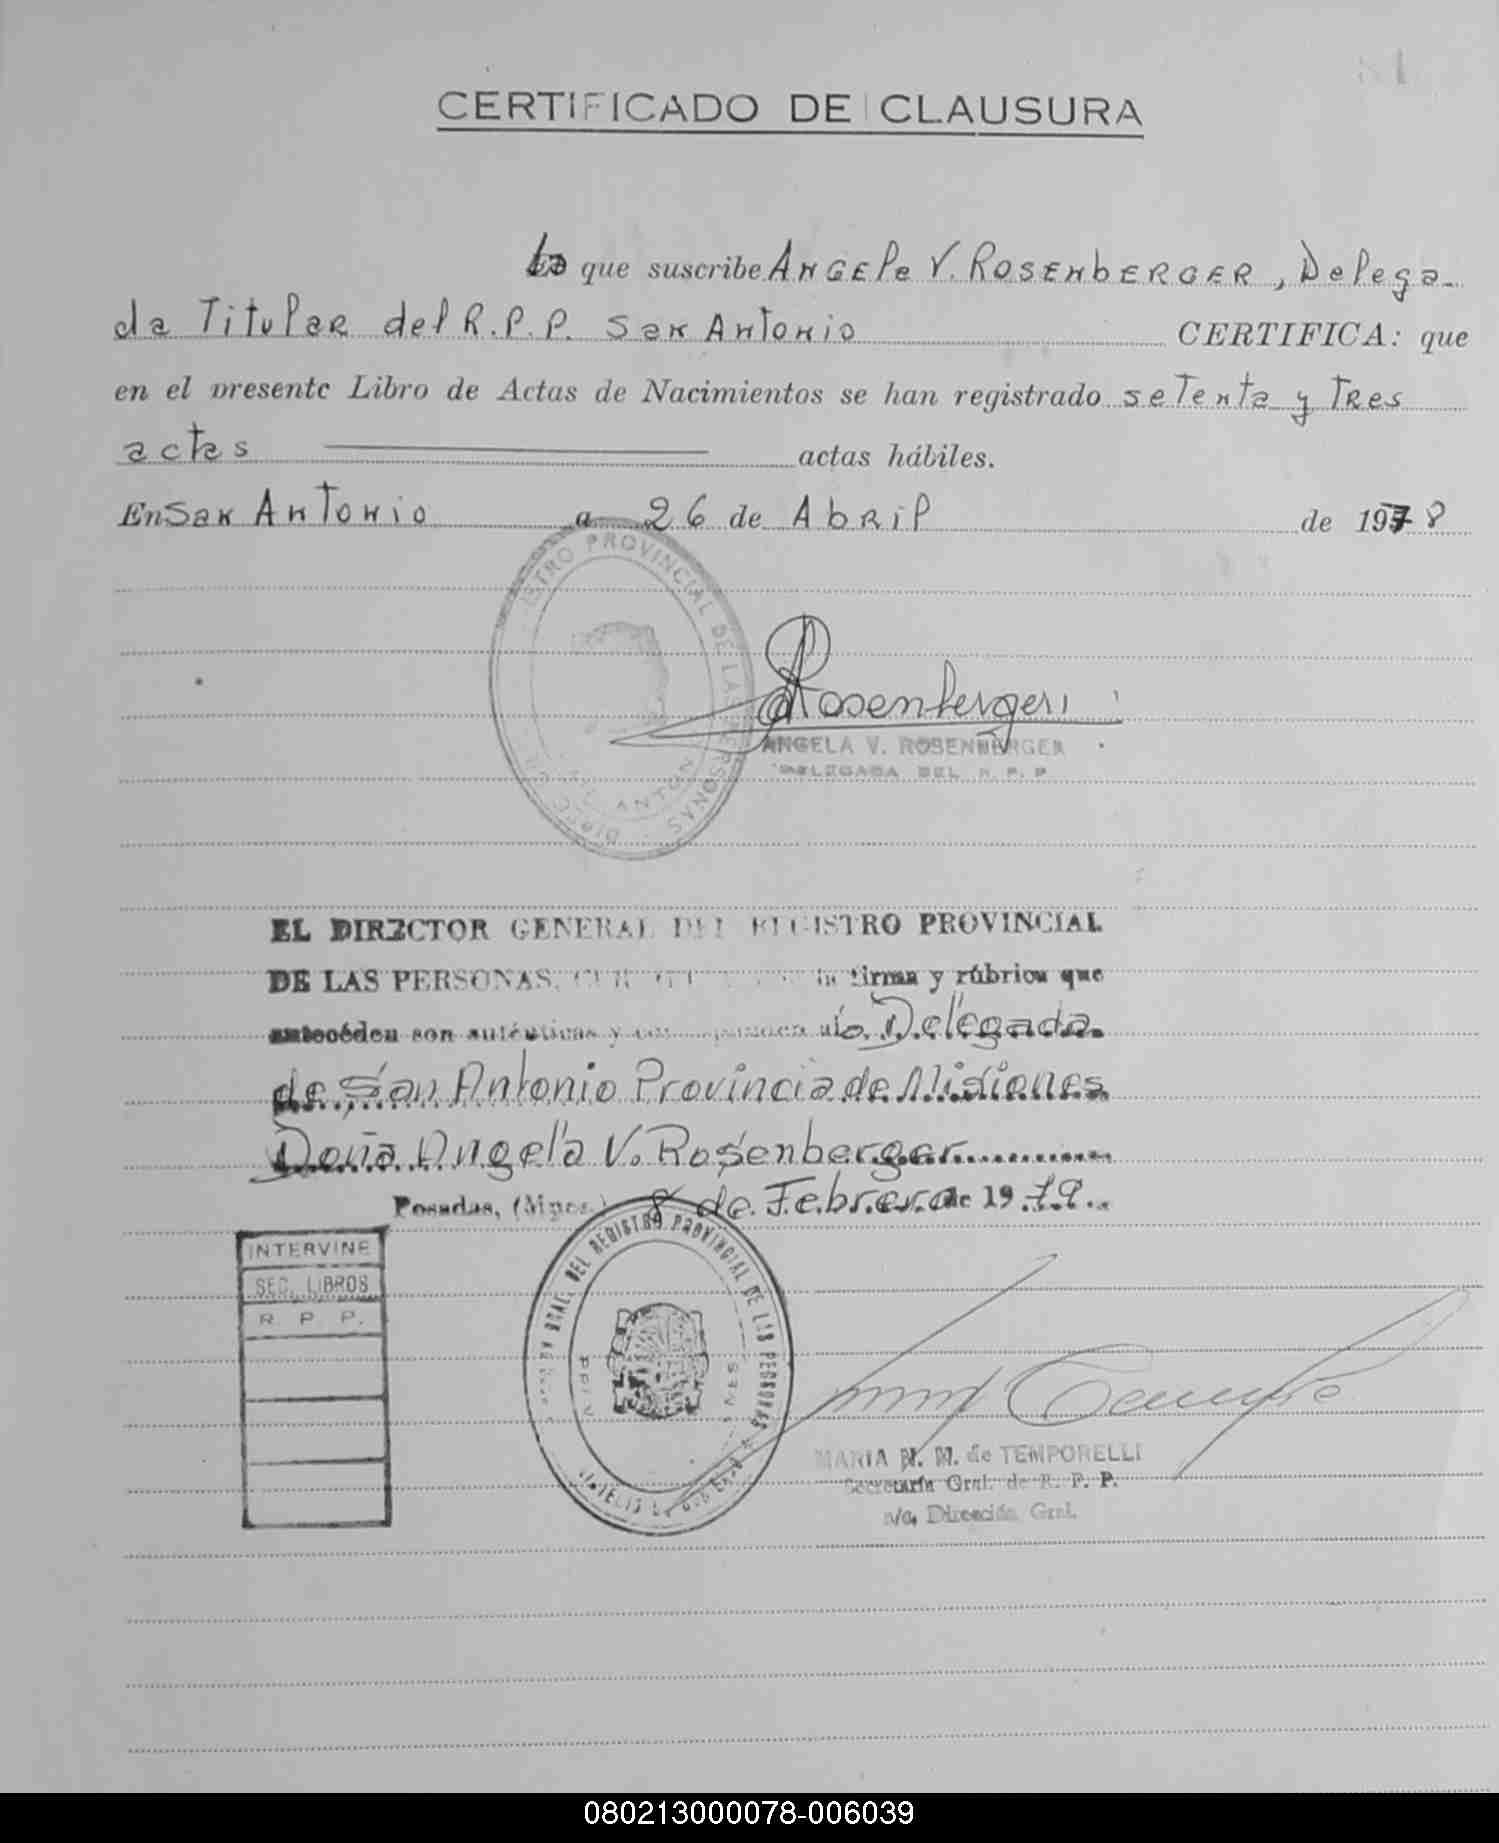 CERTIFICADO DE CLAUSURA
La que suscribe Angela V. Rosenberger, Delega-
da Titular del R.P.P. San Antonio CERTIFICA: que
en el presente Libro de Actas de Nacimientos se han registrado setenta y tres
actas actas hábiles.
En San Antonio a 26 de Abril de 1978
REGISTRO PROVINCIAL DE LAS PERSONAS
Rosenberger
ANGELA V. ROSENBERGER
DELEGADA DEL R. P. P.
EL DIRECTOR GENERAL DEL REGISTRO PROVINCIAL
DE LAS PERSONAS, la firma y rúbrica que
anteceden son auténticas y corresponden a la Delegada
de San Antonio Provincia de Misiones
Doña Angela V. Rosenberger
Posadas, (Mnes.) 8 de Febrero de 1979.
INTERVINE
SEC. LIBROS
R. P. P.
GRAL. DEL REGISTRO PROVINCIAL DE LAS PERSONAS
MARIA N. M. de TEMPORELLI
Secretaría Gral. de R. P. P.
a/c. Dirección Gral.
080213000078-006039